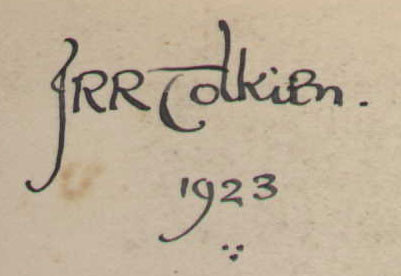 JRR Tolkien.
1923